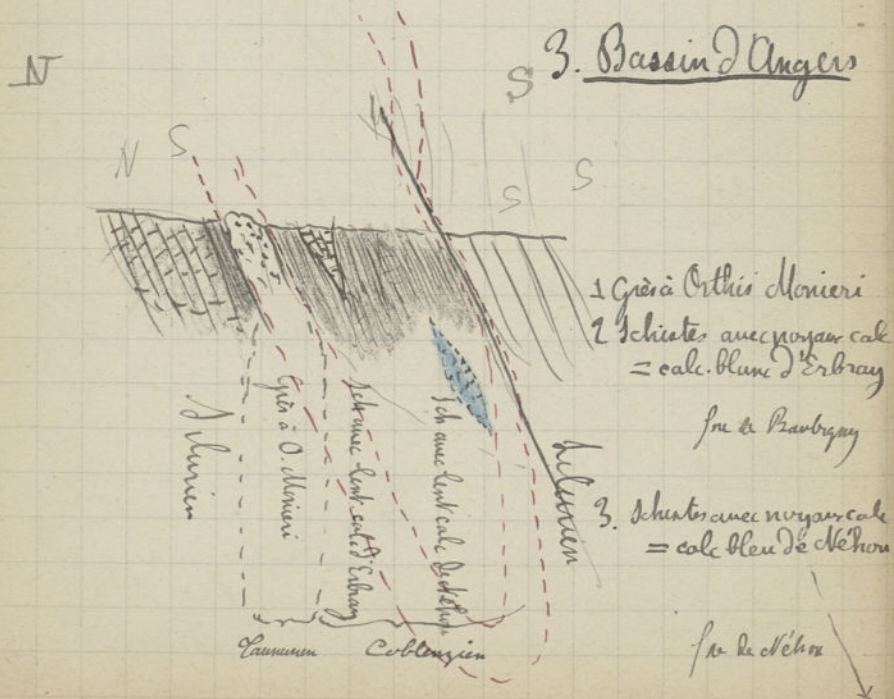 N
3. Bassin d'Angers
S
N
S
S
S
1 Grès à Orthis Monieri
2 Schistes avec noyaux calc
= calc. blanc d'Erbray
fne de Baubigny
3. Schistes avec noyaux calc
= calc bleu de Néhou
fne de Néhou
Silurien
Grès à O. Monieri
Sch avec lent calc d'Erbray
Sch avec lent calc de Néhou
Silurien
Taunusien
Coblenzien